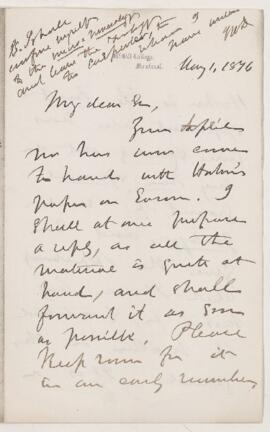 P.S. I shall
confine myself
to the
and leave the
to Carpenter, to
whom I
have written
JWD
McGill College,
Montreal.
May 1, 1876
My dear Sir,
Your
no has now come
to hand with Hahn's
paper on Eozoon. I
shall at once prepare
a reply, as all the
material is quite at
hand, and shall
forward it as soon
as possible. Please
keep room for it
in an early number,